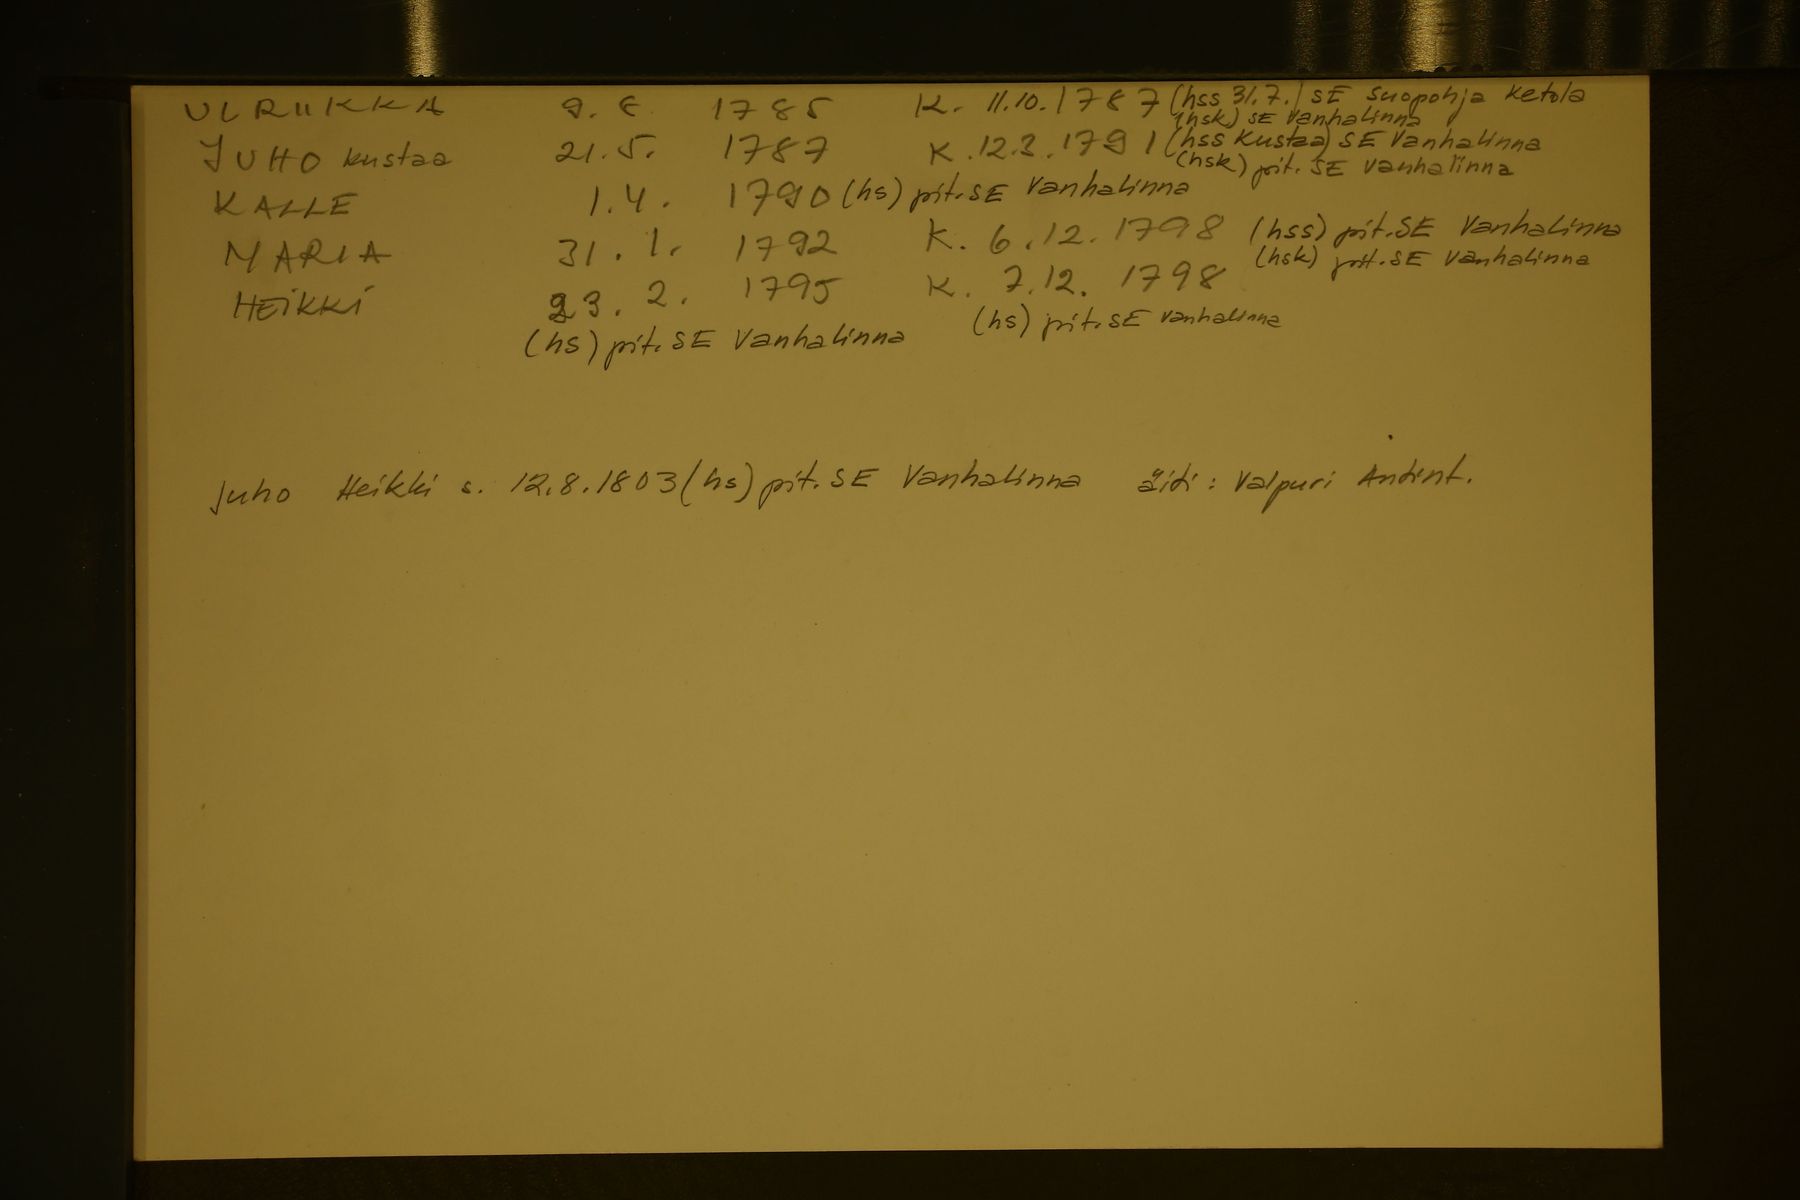 ULRIIKKA 9. 6. 1785 K. 11.10.1787 (hss 31.7.) SE Suopohja Ketola
(hsk) SE Vanhalinna
JUHO Kustaa 21.5. 1787 K.12.3.1791 (hss Kustaa) SE Vanhalinna
(hsk) pit. SE Vanhalinna
KALLE 1.4. 1790 (hs) pit. SE Vanhalinna
MARIA 31.1. 1792 K. 6.12.1798 (hss) pit. SE Vanhalinna
(hsk) pit. SE Vanhalinna
HEIKKI 23. 2. 1795 K. 7.12. 1798
(hs) pit. SE Vanhalinna (hs) pit. SE Vanhalinna
Juho Heikki s. 12.8.1803 (hs) pit. SE Vanhalinna äiti: Valpuri Antint.